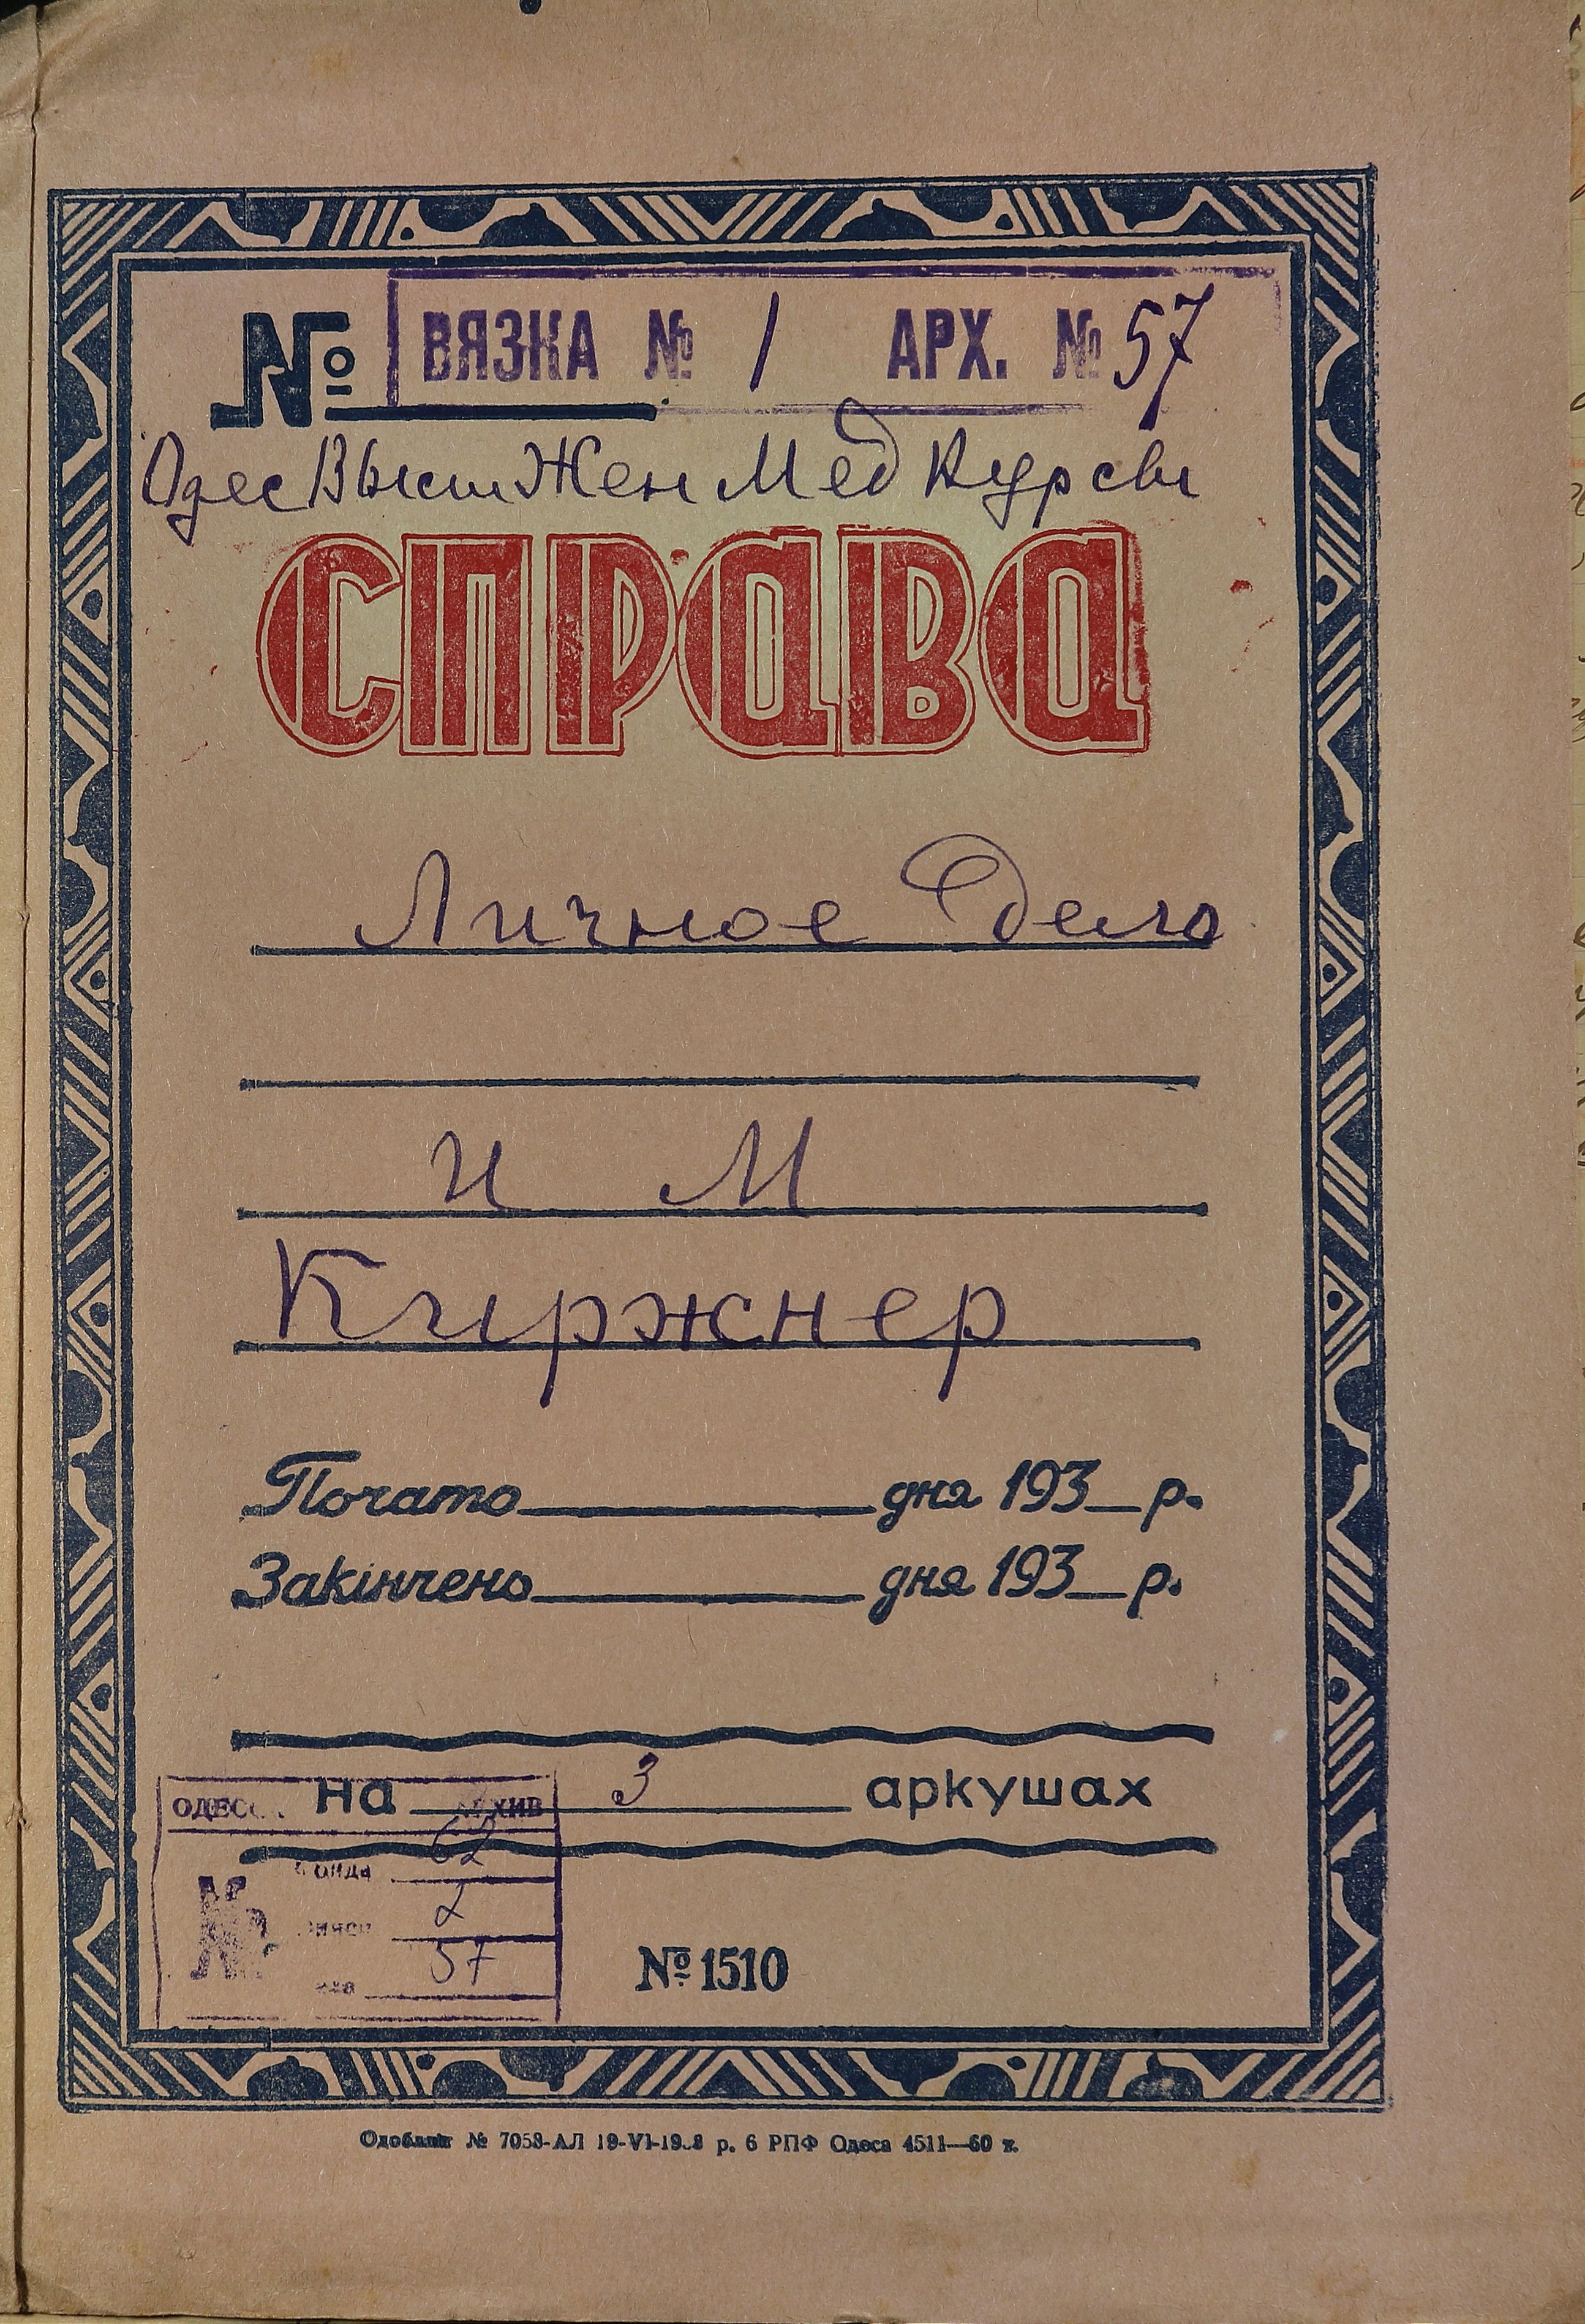 № ВЯЗКА № 1 АРХ. № 57
Одес Высш Жен Мед Курсы
СПРАВА
Личное Дело
И М
Киржнер
Почато дня 193 р.
Закінчено дня 193 р.
на 3 аркушах
62
2
57
№ 1510
№ 7058-АЛ р. 6 РПФ Одеса 4511—60 т.